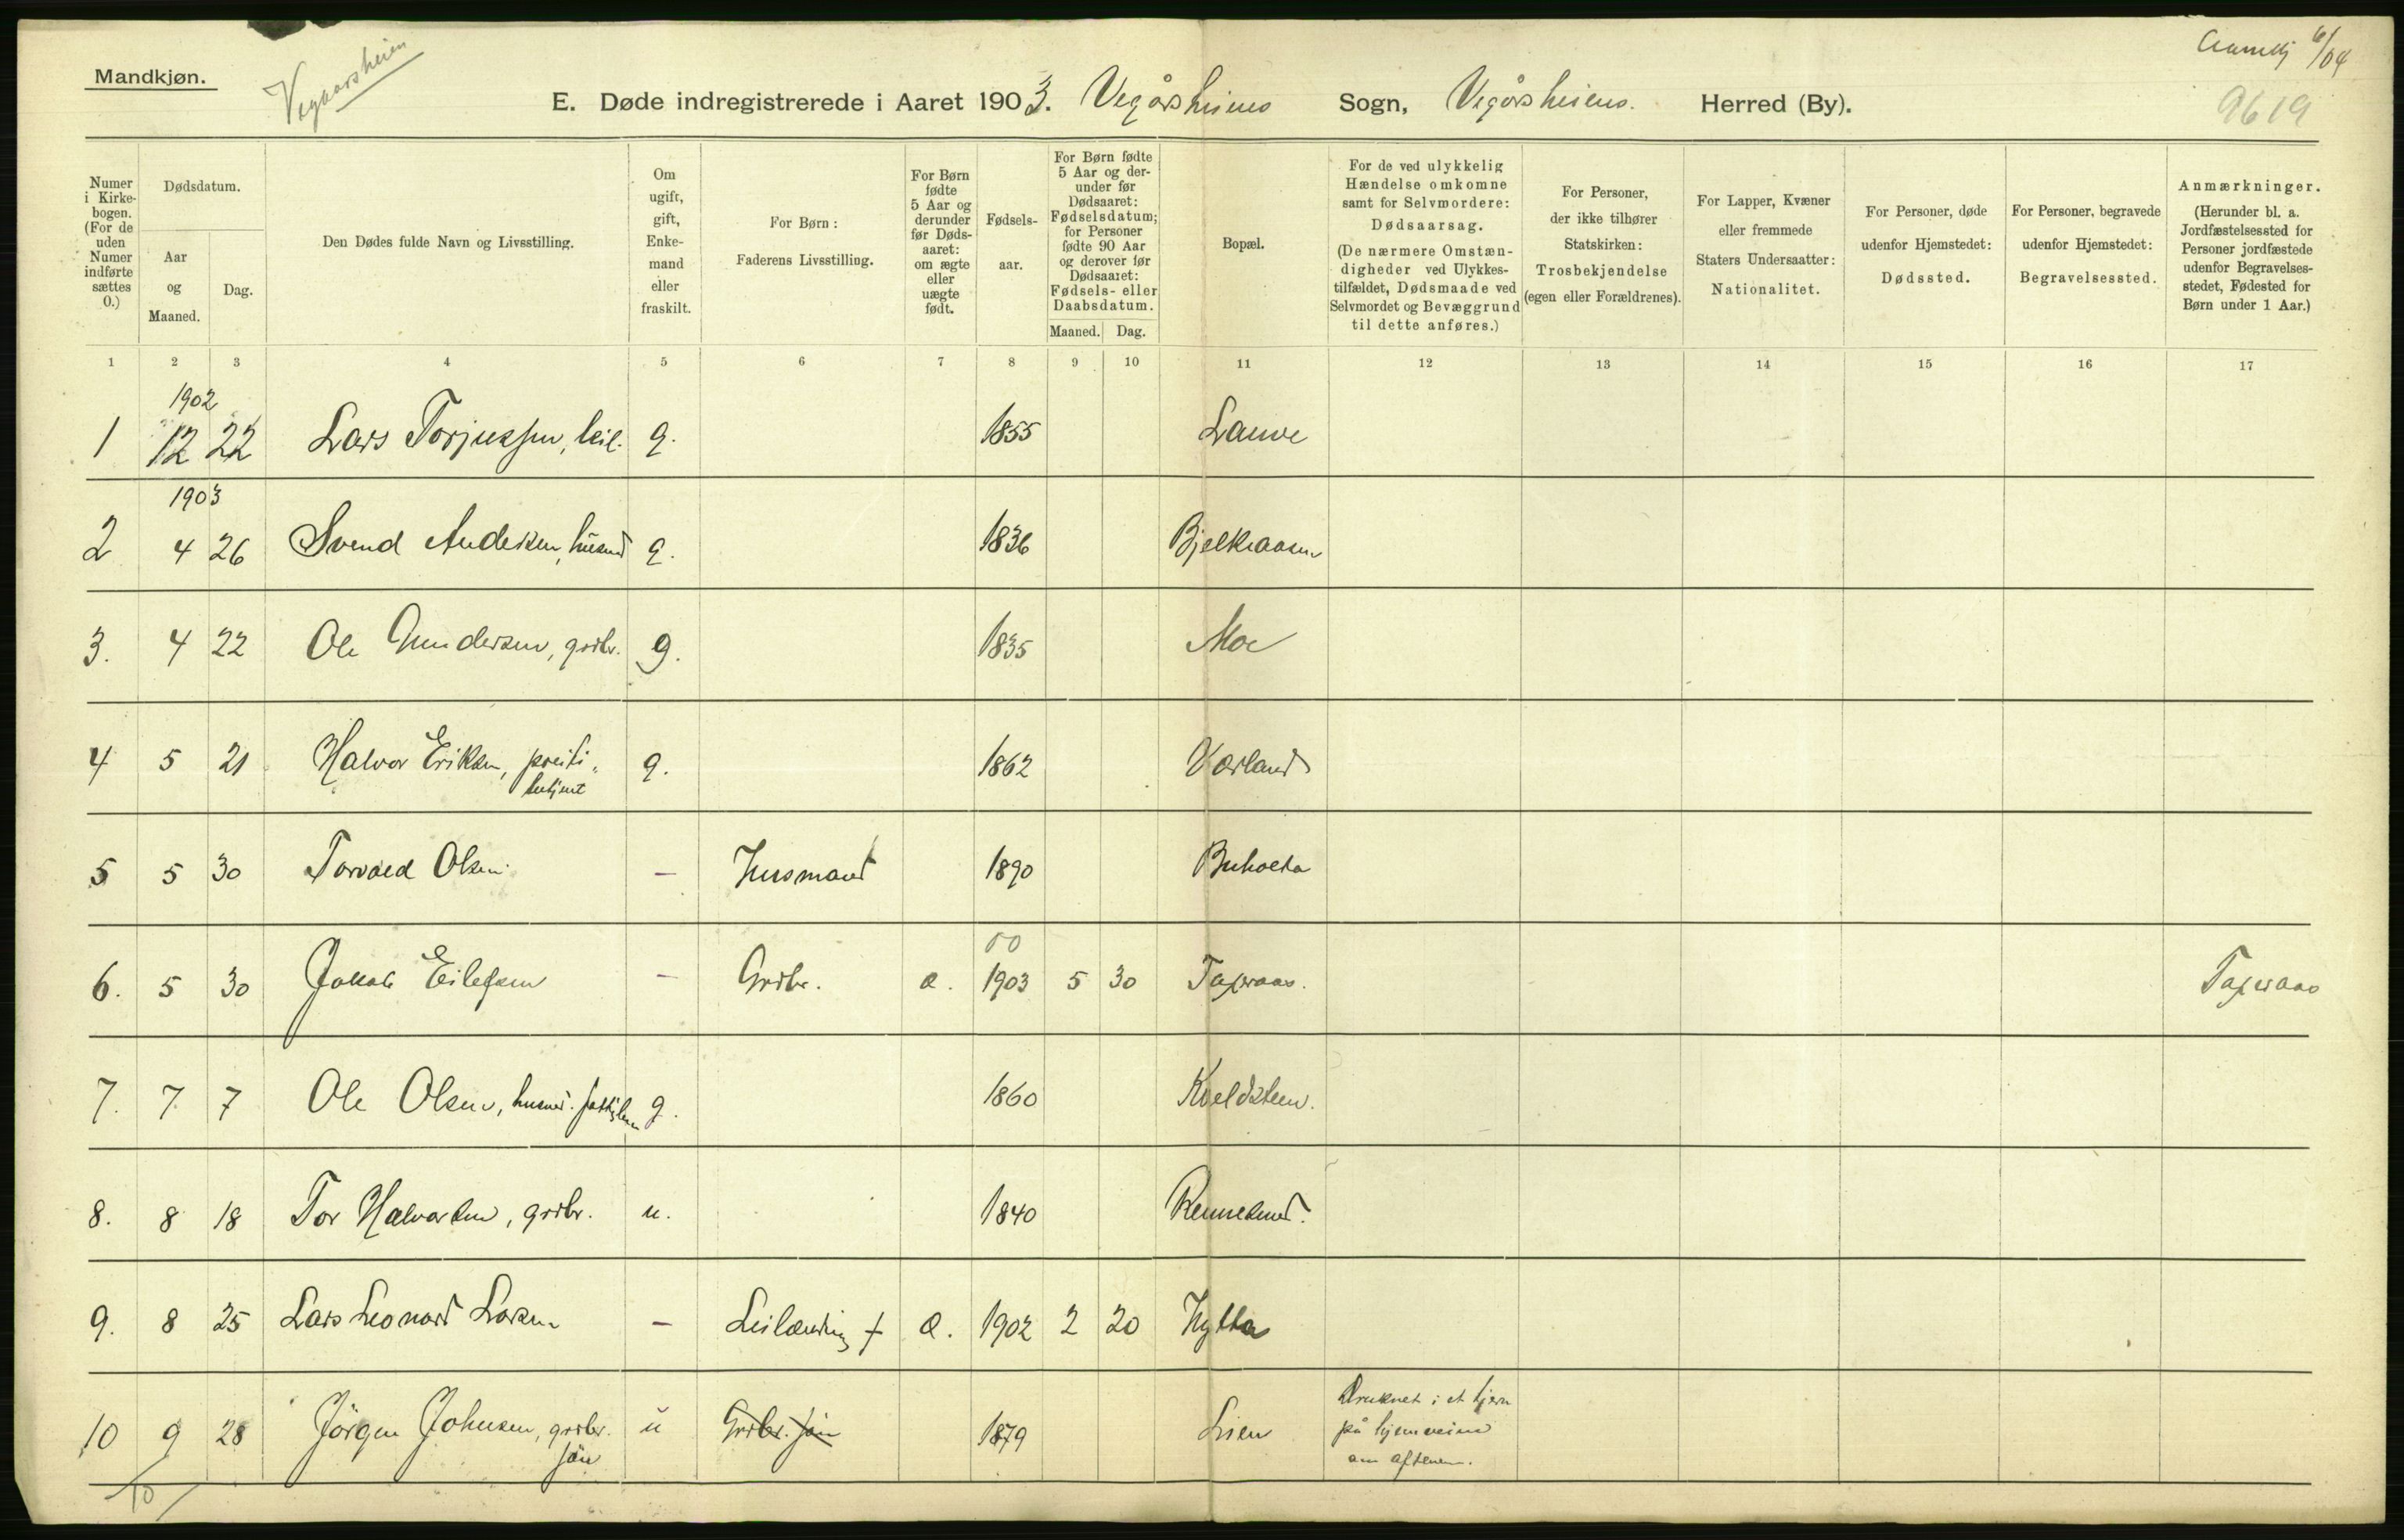 Mandkjøn.
Vegaarsheien
E. Døde indregistrerede i Aaret 1903. Vegårsheiens Sogn, Vegårsheiens. Herred (By).
6/04
9619
Numer i Kirkebogen. (For de uden Numer indførte sættes 0.)
Dødsdatum.
Aar og Maaned.
Dag.
Den Dødes fulde Navn og Livsstilling.
Om ugift, gift, Enkemand eller fraskilt.
For Børn: Faderens Livsstilling.
For Børn fødte 5 Aar og derunder før Dødsaaret: om ægte eller uægte født.
Fødselsaar.
For Børn fødte 5 Aar og derunder før Dødsaaret: Fødselsdatum; for Personer fødte 90 Aar og derover før Dødsaaret: Fødsels- eller Daabsdatum.
Maaned. Dag.
Bopæl.
For de ved ulykkelig Hændelse omkomne samt for Selvmordere: Dødsaarsag. (De nærmere Omstændigheder ved Ulykkestilfældet, Dødsmaade ved Selvmordet og Bevæggrund til dette anføres.)
For Personer, der ikke tilhører Statskirken: Trosbekjendelse (egen eller Forældrenes).
For Lapper, Kvæner eller fremmede Staters Undersaatter: Nationalitet.
For Personer, døde udenfor Hjemstedet: Dødssted.
For Personer, begravede udenfor Hjemstedet: Begravelsessted.
Anmærkninger. (Herunder bl. a. Jordfæstelsessted for Personer jordfæstede udenfor Begravelsesstedet, Fødested for Børn under 1 Aar.)
1 2 3 4 5 6 7 8 9 10 11 12 13 14 15 16 17
1902
1 12 22 Lars Torjussen, leil. g. 1855 Lauve
1903
2 4 26 Svend Andersen, husmd g. 1836 Bjelkaasen
3. 4 22 Ole Gundersen, grdbr. g. 1835 Moe
4 5 21 Halvor Eriksen, g. 1862 Værland
5 5 30 Torvald Olsen - Husmand 1890 Buholta
00
6. 5 30 Jakob Eilefsen - Grdbr. æ. 1903 5 30 Taxeraas. Taxeraas
7. 7 7 Ole Olsen, husmd. g. 1860 Kveldsteen.
8. 8 18 Tor Halvorsen, grdbr. u. 1840
9. 8 25 Lars Leonard Larsen - Leilænding † æ. 1902 2 20 Hytta
10 9 28 Jörgen Johnsen, grdbr. u Grdbr. sön 1879 Lien Druknet i et tjern
sön på hjemveien
om aftenen.
10